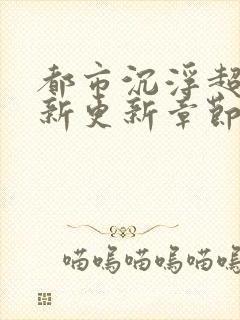 都市沉浮超
新更新章節
喵嗚喵嗚喵嗚